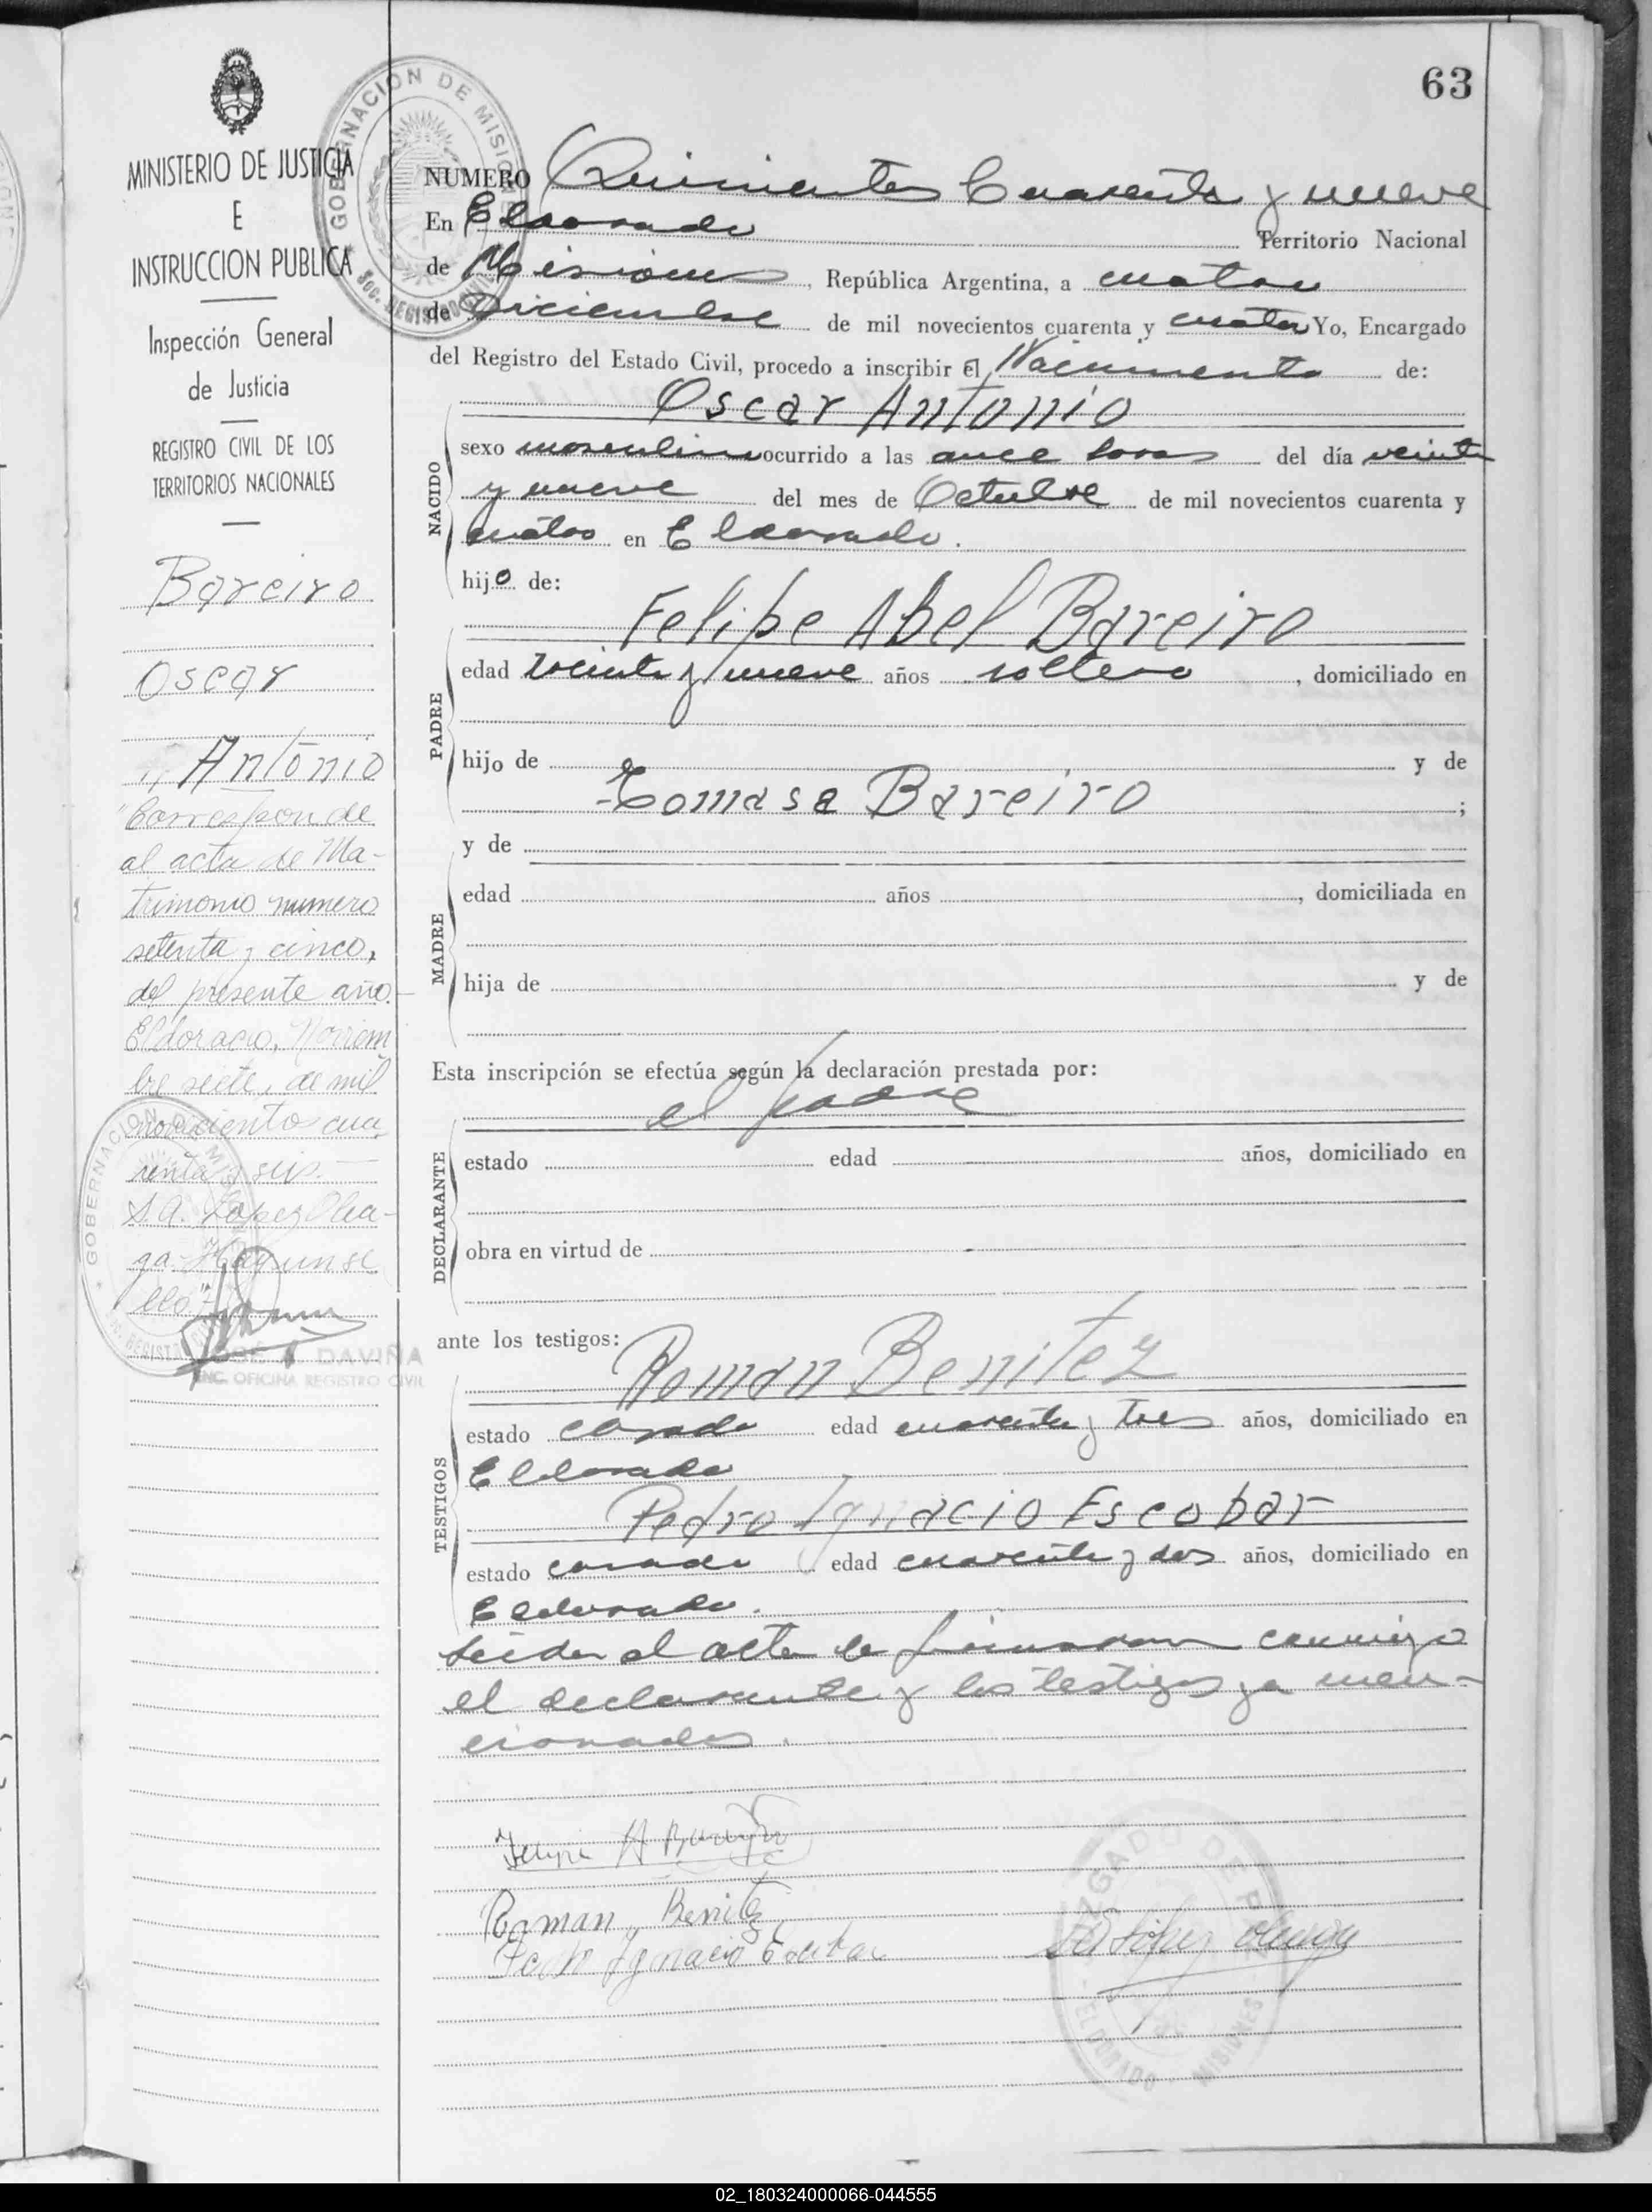 63
MINISTERIO DE JUSTICIA
E
INSTRUCCION PUBLICA
Inspección General
de Justicia
REGISTRO CIVIL DE LOS
TERRITORIOS NACIONALES
Bareiro
Oscar
Antonio
"Corresponde
al acta de Ma-
trimonio numero
setenta y cinco,
del presente año.
Eldorado, Noviem
bre siete, de mil
novecientos cua
renta y seis.
S.A. Lopez Olea-
ga. Hay un se
llo"
DAVIÑA
ENC. OFICINA REGISTRO CIVIL
GOBERNACION DE MISIONES
NUMERO Quinientos Cuarenta y nueve
En Eldorado Territorio Nacional
de Misiones, República Argentina, a cuatro
de Diciembre de mil novecientos cuarenta y cuatro Yo, Encargado
del Registro del Estado Civil, procedo a inscribir el Nacimiento de:
Oscar Antonio
NACIDO
sexo masculino ocurrido a las once horas del día veinte
y nueve del mes de Octubre de mil novecientos cuarenta y
cuatro en Eldorado.
hijo de:
Felipe Abel Bareiro
PADRE
edad veinte y nueve años soltero, domiciliado en
hijo de y de
Tomasa Bareiro ;
y de
MADRE
edad años, domiciliada en
hija de y de
Esta inscripción se efectúa según la declaración prestada por:
el padre
DECLARANTE
estado edad años, domiciliado en
obra en virtud de
ante los testigos:
Roman Benitez
TESTIGOS
estado casado edad cuarenta y tres años, domiciliado en
Eldorado
Pedro Ignacio Escobar
estado casado edad cuarenta y dos años, domiciliado en
Eldorado.
Leida el acta la firmaron conmigo
el declarante y los testigos ya men-
cionados.
Felipe A Bareiro
Roman Benitez
Pedro Ignacio Escobar
SA Lopez Oleaga
JUZGADO DE PAZ
ELDORADO MISIONES
02_180324000066-044555